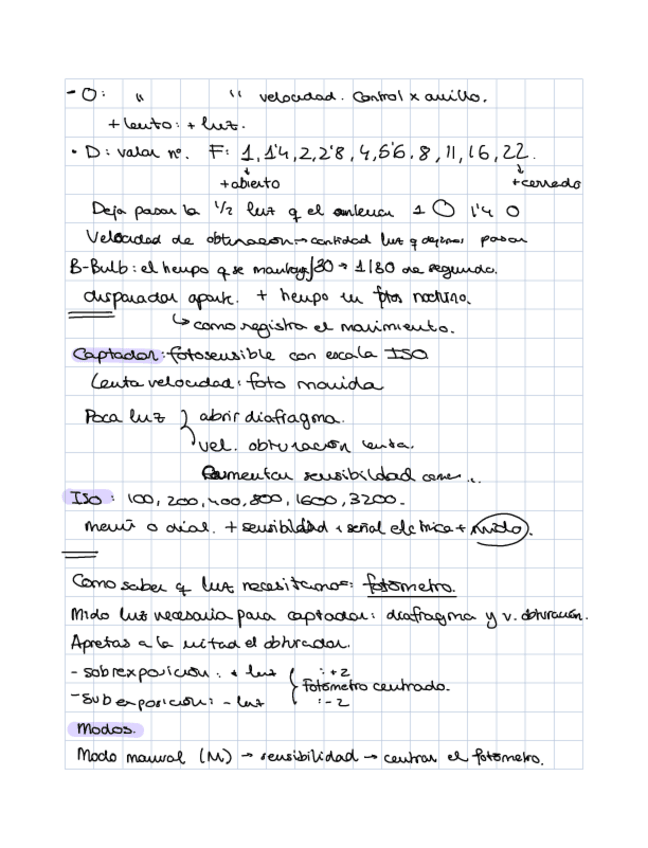 - O: " " velocidad. Control x anillo.
+ lento: + luz.
• D: valor nº. F: 1, 1'4, 2, 2'8, 4, 5'6, 8, 11, 16, 22.
+abierto +cerrado
Deja pasar la 1/2 luz q el anterior 1 O 1'4 O
Velocidad de obturación → cantidad luz q dejamos pasar
B-Bulb: el tiempo q se mantenga /80 → 1/80 de segundo.
disparador apart. + tiempo en ftos nocturno.
↳ como registra el movimiento.
Captador: fotosensible con escala ISO
Lenta velocidad: foto movida
Poca luz } abrir diafragma.
vel. obturación lenta.
Aumentar sensibilidad
ISO: 100, 200, 400, 800, 1600, 3200.
menú o dial. + sensibilidad, señal eléctrica + ruido.
Como saber q luz necesitamos: fotómetro.
Mido luz necesaria para captador: diafragma y v. obturación.
Apretas a la mitad el obturador.
- sobrexposición: + luz { : +2
fotómetro centrado.
- Subexposición: - luz : -2
Modos.
Modo manual (M) → sensibilidad → centrar el fotómetro.